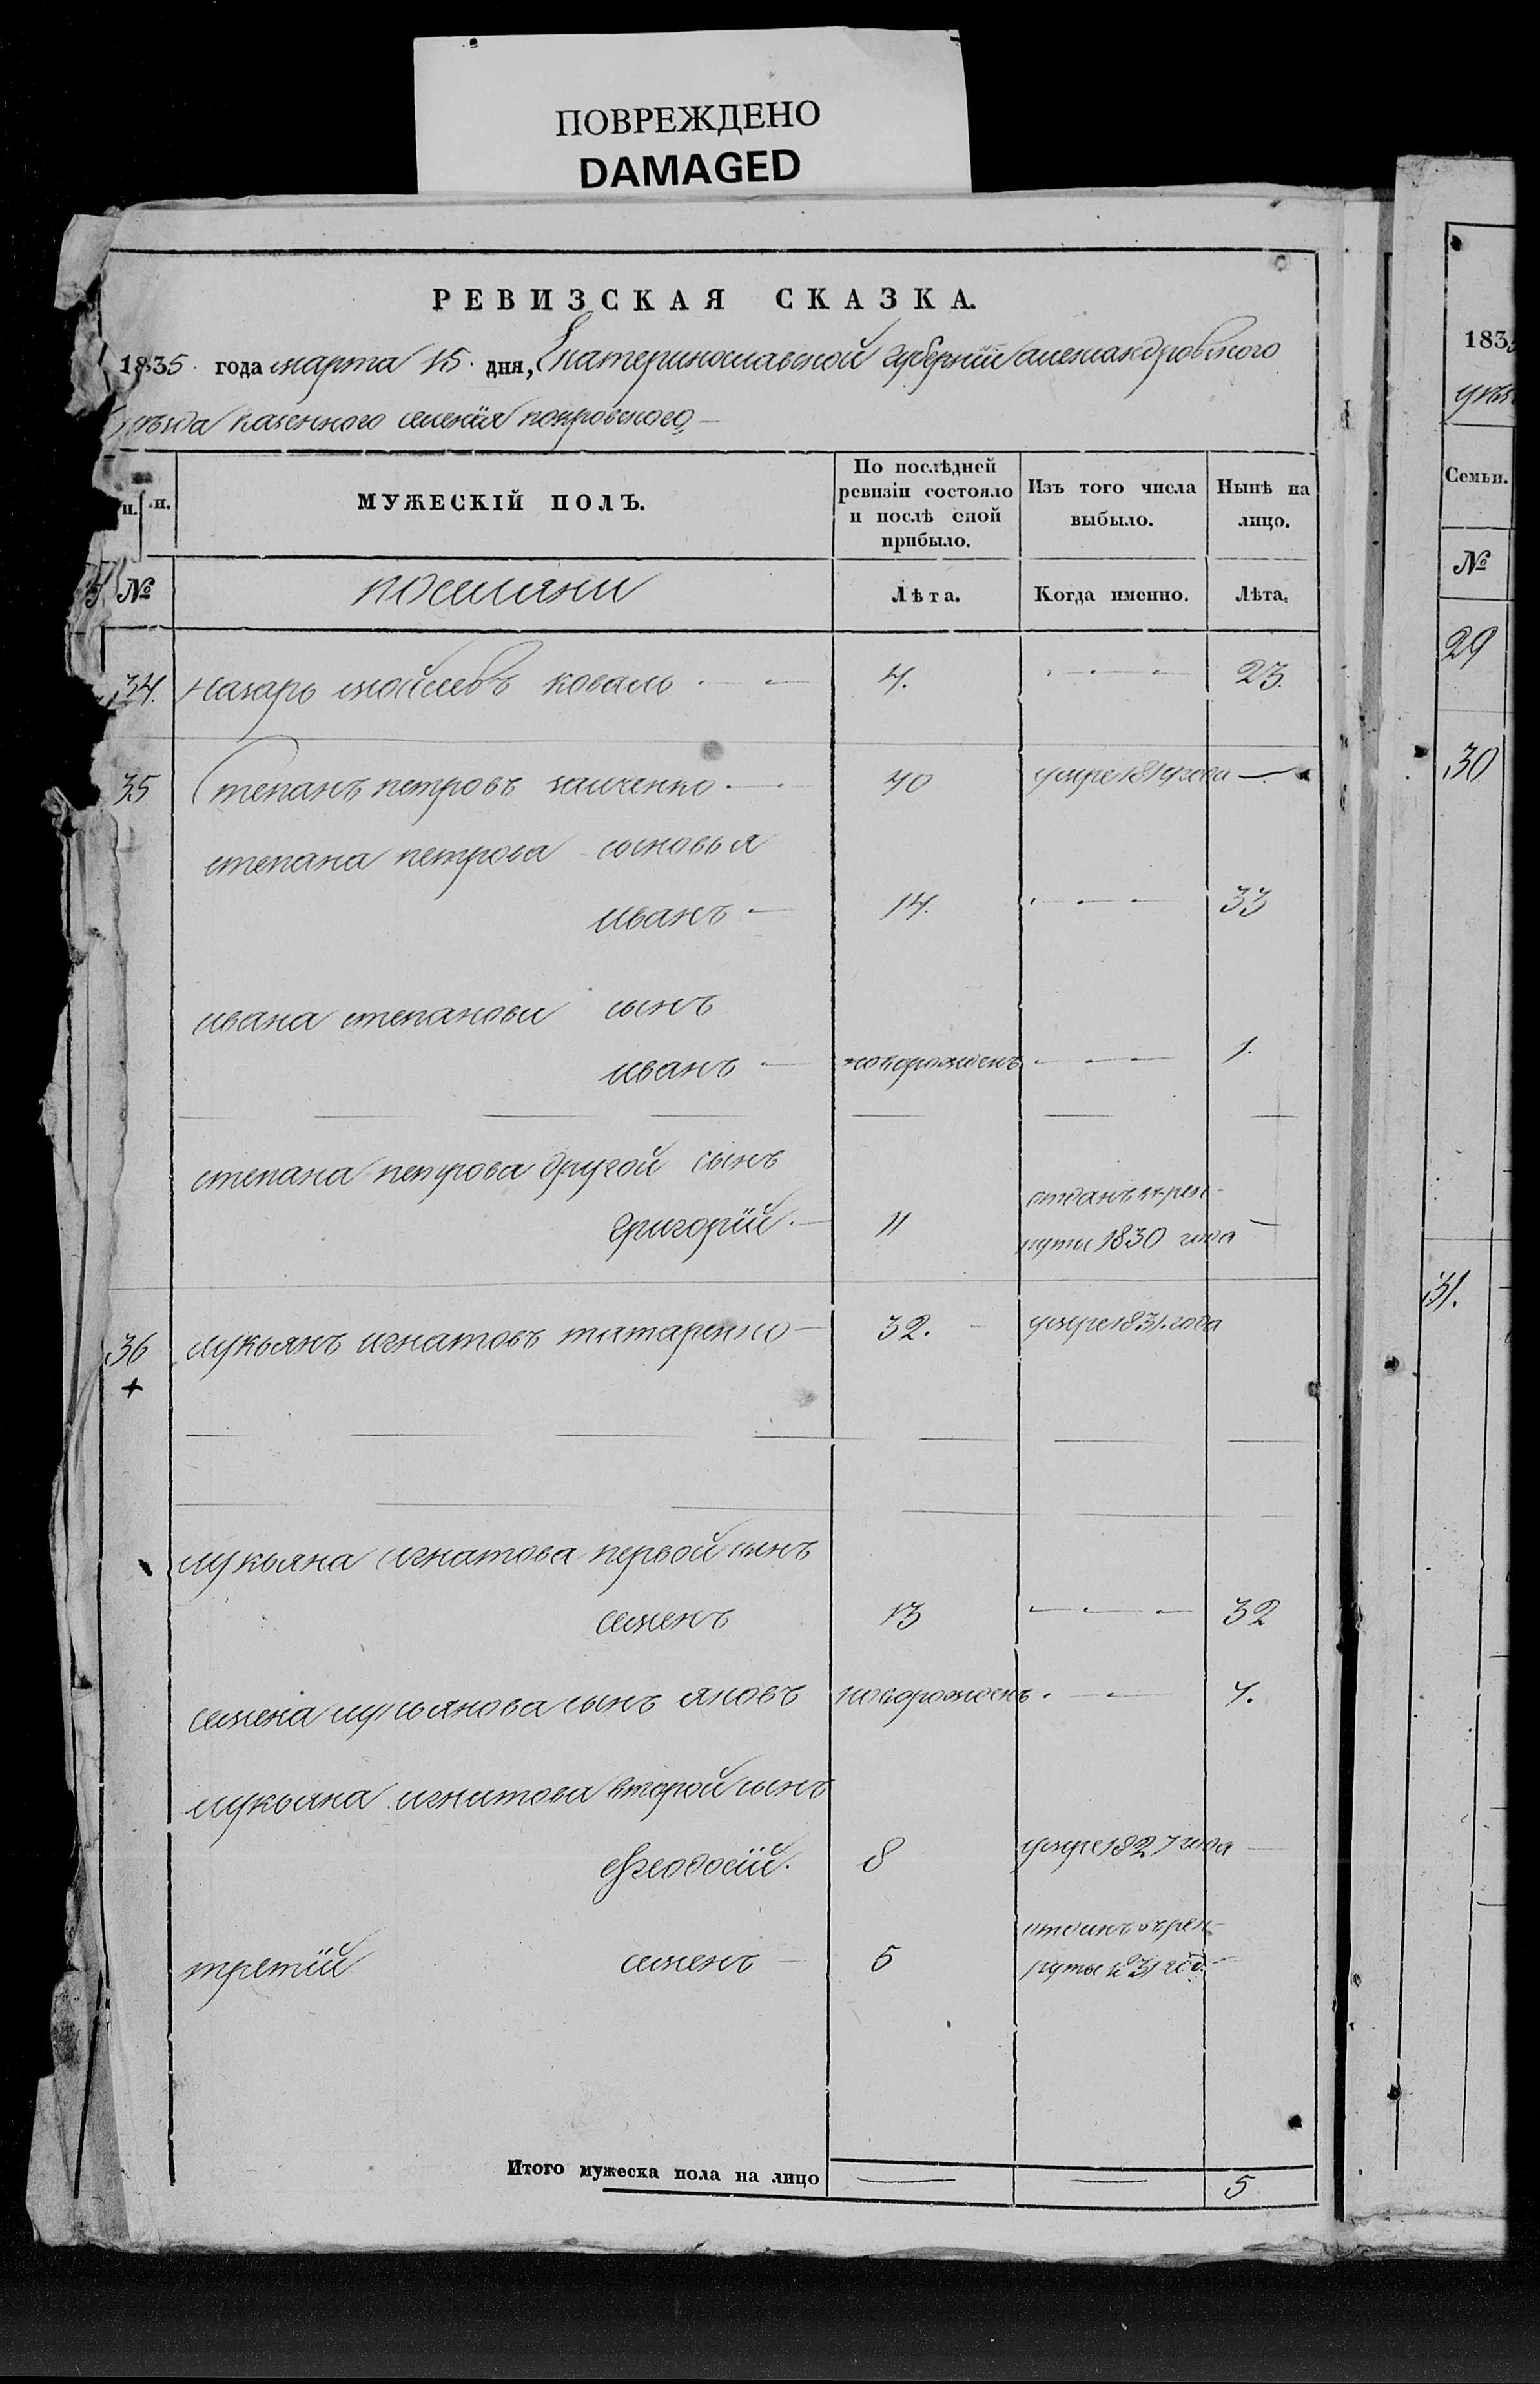 ПОВРЕЖДЕНО
DAMAGED
РЕВИЗСКАЯ СКАЗКА.
1835 года марта 15 дня, Екатеринославской губерніи александровского
уѣзда казенного селенія покровского,
и. и. МУЖЕСКІЙ ПОЛЪ. По послѣдней ревизіи состояло и послѣ оной прибыло. Изъ того числа выбыло. Нынѣ на лицо.
№ поселяни Лѣта. Когда именно. Лѣта.
34. Назаръ мойсеевъ коваль 4. 23.
35 Степанъ петровъ 40 умре 1819 года
степана петрова сыновья
иванъ 14. 33
ивана степанова сынъ
иванъ новорожденъ 1.
степана петрова другой сынъ
отданъ в рек-
григорій. 11 руты 1830 года
36 лукьянъ игнатовъ татаренко 32. умре 1831. года
+
лукьяна игнатова первой сынъ
семенъ 13 32
семена лукьянова сынъ яковъ новорожденъ. 4.
лукьяна игнатова второй сынъ
Феодосій. 8 умре 1827 года
отданъ в рек-
третій семенъ 5 руты 1831 год.
Итого мужеска пола на лицо 5
1835
уѣз
Семьи.
№
29
30
31.